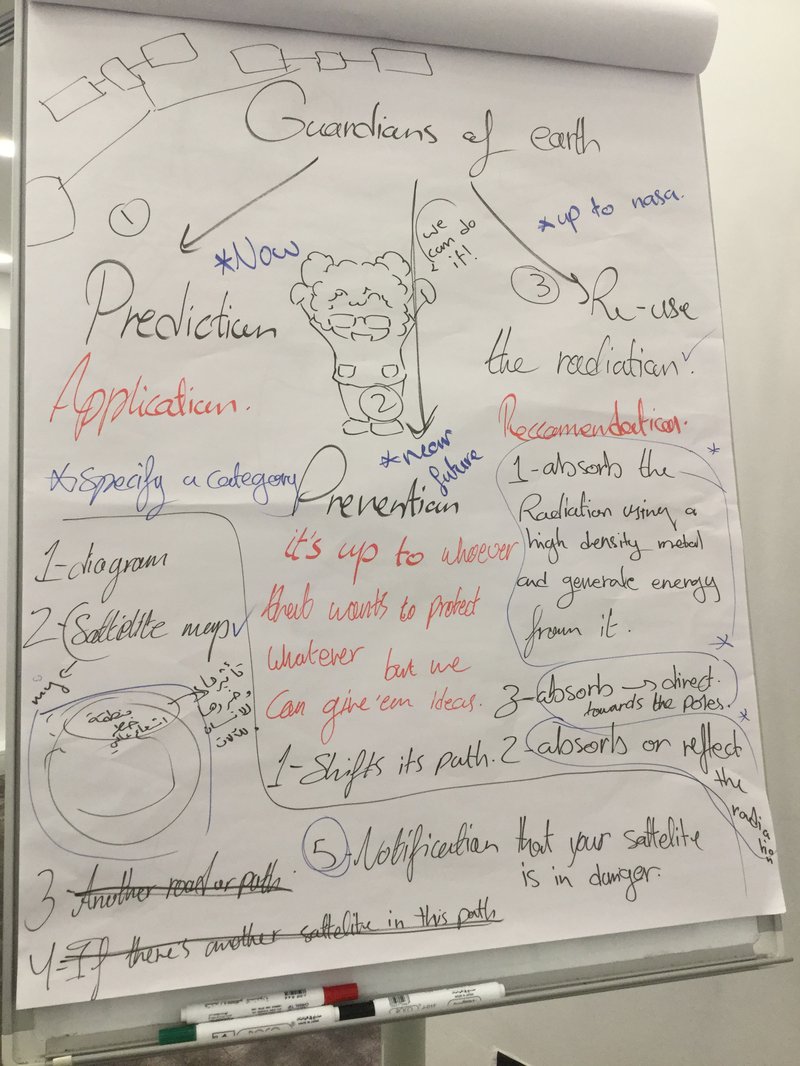 Guardians of earth
1
*Now
we
can do
it!
*up to nasa.
3
Prediction
Re-use
the radiation.
Application.
2
*near
future
Reccomendation.
*specify a category
Prevention
1-diagram
2-Sattelite map
it's up to whoever
that wants to protect
whatever but we
Can give'em Ideas.
1-absorb the
Radiation using a
high density metal
and generate energy
from it.
3-absorb → direct.
towards the poles.
1-Shifts its path.
2-absorb or reflect
the
radiation
my
منطقة
خطر
5-Notification that your sattelite
is in danger.
3-Another road or path.
4-If there's another sattelite in this path